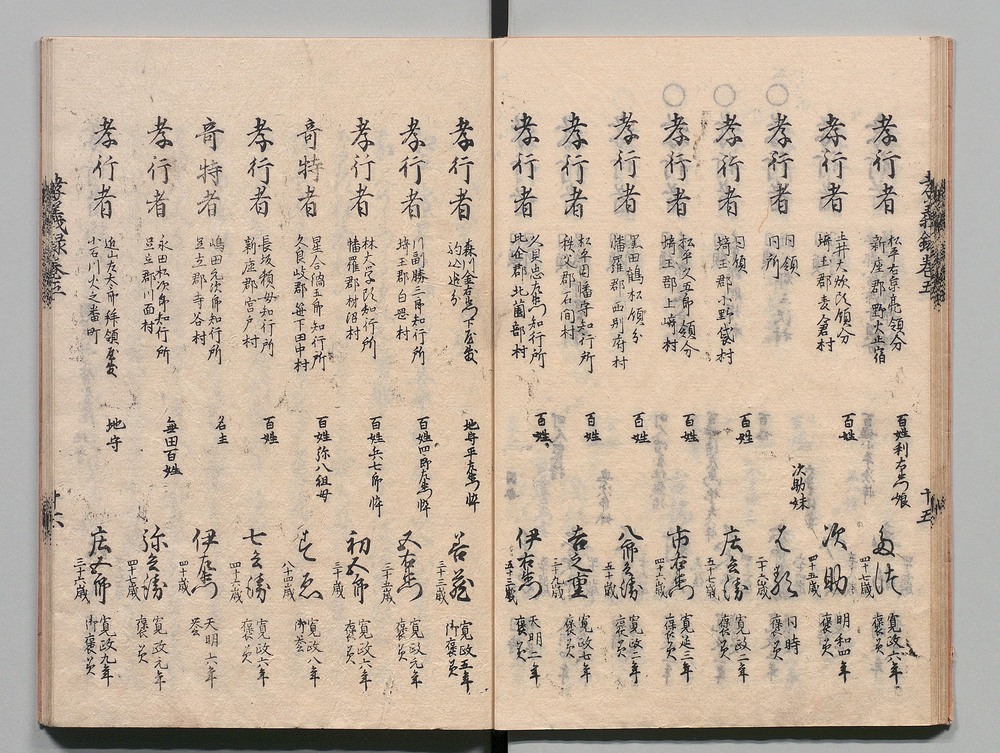 孝義録巻五
十五
孝行者
松平右京亮領分
新座郡野火止宿
百姓利右衛門娘
四十七歳
寛政六年
褒美
孝行者
土井大炊頭領分
埼玉郡麦倉村
百姓
次助
四十五歳
明和四年
褒美
○
孝行者
同領
同所
次助妹
二十六歳
同時
褒美
○
孝行者
同領
埼玉郡小野袋村
百姓
庄兵衛
五十七歳
寛政二年
褒美
○
孝行者
松平久五郎領分
埼玉郡上崎村
百姓
市右衛門
四十六歳
寛延二年
褒美
孝行者
黒田鶴松領分
幡羅郡西別府村
百姓
八郎兵衛
五十歳
寛政二年
褒美
孝行者
松平因幡守知行所
秩父郡石間村
百姓
吉之重
三十九歳
寛政七年
褒美
孝行者
久貝忠左衛門知行所
比企郡北薗部村
百姓
伊右衛門
五十三歳
天明二年
褒美
孝行者
森川金右衛門下屋敷
駒込追分
地守平左衛門悴
岩蔵
三十三歳
寛政五年
御褒美
孝行者
川副勝三郎知行所
埼玉郡白岡村
百姓四郎左衛門悴
又右衛門
三十歳
寛政元年
褒美
孝行者
林大学頭知行所
幡羅郡柿沼村
百姓兵七郎悴
初五郎
三十歳
寛政六年
褒美
奇特者
星合鍋五郎知行所
久良岐郡笹下田中村
百姓弥八祖母
八十四歳
寛政八年
御芸
孝行者
長坂積母知行所
新座郡宮戸村
百姓
七兵衛
四十三歳
寛政六年
褒美
奇特者
嶋田元次郎知行所
足立郡寺谷村
名主
伊左衛門
四十歳
天明六年
孝行者
永田松次郎知行所
足立郡川面村
無田百姓
弥兵衛
四十七歳
寛政元年
褒美
孝行者
遠山左太郎拝領屋敷
小石川火之番町
地守
庄五郎
三十六歳
寛政九年
御褒美
孝義録巻五
十六